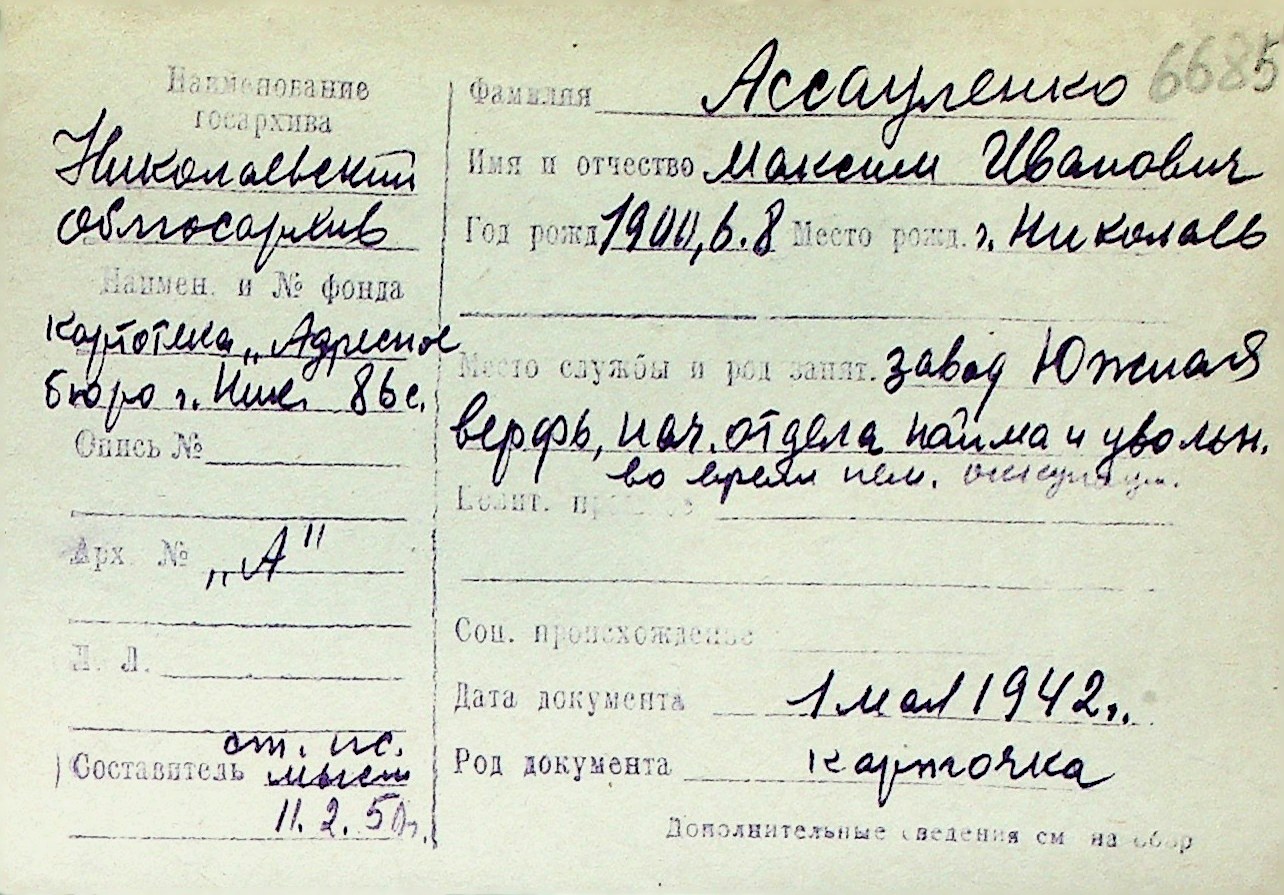 Наименование
госархива
Николаевский
облгосархив
Наимен. и № фонда
картотека „Адресное
бюро г. Ник. 86с.
Опись №
Арх. № „А"
Л. Л.
Составитель
11.2.50г.
6685
Фамилия Ассауленко
Имя и отчество Максим Иванович
Год рожд 1900, 6.8 Место рожд. г. Николаев
Место службы и род занят. завод Южная
верфь, нач. отдела найма и увольн.
во время нем. оккупац.
Соц. происхождение
Дата документа 1 мая 1942 г.
Род документа карточка
Дополнительные сведения см на обор